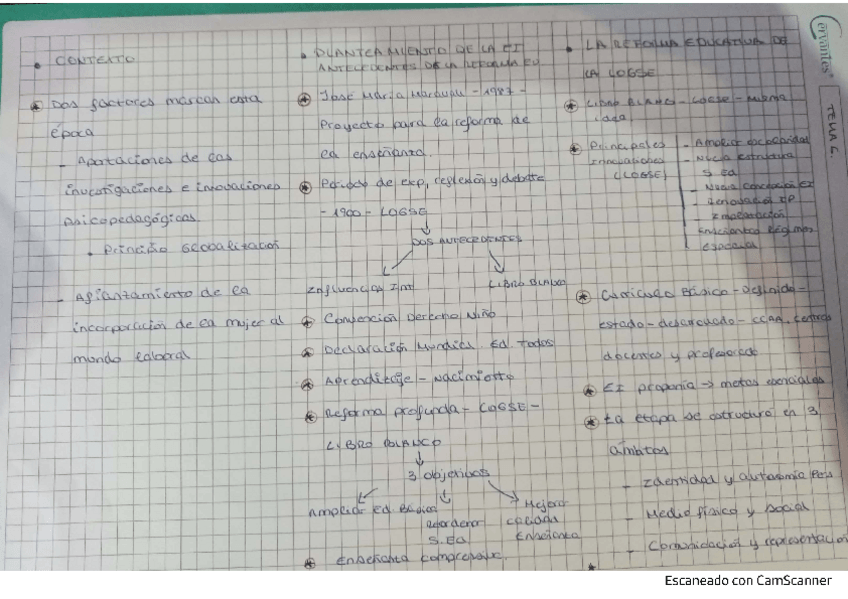 • CONTEXTO
⊛ Dos factores marcan esta
época
- Aportaciones de las
investigaciones e innovaciones
psicopedagógicas.
• Principio Globalización
- Afianzamiento de la
incorporación de la mujer al
mundo laboral
• PLANTEAMIENTO DE LA EI
ANTECEDENTES DE LA REFORMA EU
⊛ José María Maravall - 1987 -
Proyecto para la reforma de
la enseñanza.
⊛ Periodo de exp, reflexión y debate
- 1990 - LOGSE
↓
DOS ANTECEDENTES
Influencias Int
LIBRO BLANCO
⊛ Convención Derecho Niño
⊛ Declaración Mundial Ed. Todos
⊛ Aprendizaje - Nacimiento
⊛ Reforma profunda - LOGSE -
LIBRO BLANCO
↓
3 objetivos
Ampliar ed Básica
Reordenar
S. Ed
Mejora
calidad
Enseñanza
⊛ Enseñanza
• LA REFORMA EDUCATIVA DE
LA LOGSE
⊛ Libro BLANCO - LOGSE - misma
⊛ Principales
Innovaciones
(LOGSE)
- Ampliar escolaridad
- Nueva estructura
S. Ed
- Nueva concepción EI
- Renovación FP
⊛ Currículo Básico - Definido -
Estado - - CCAA, centros
docentes y profesorado
⊛ EI proponía → metas esenciales
⊛ La etapa se estructuró en 3
ámbitos
- Identidad y autonomía Pers
- Medio físico y social
- Comunicación y representación
Cervantes
TEMA
Escaneado con CamScanner